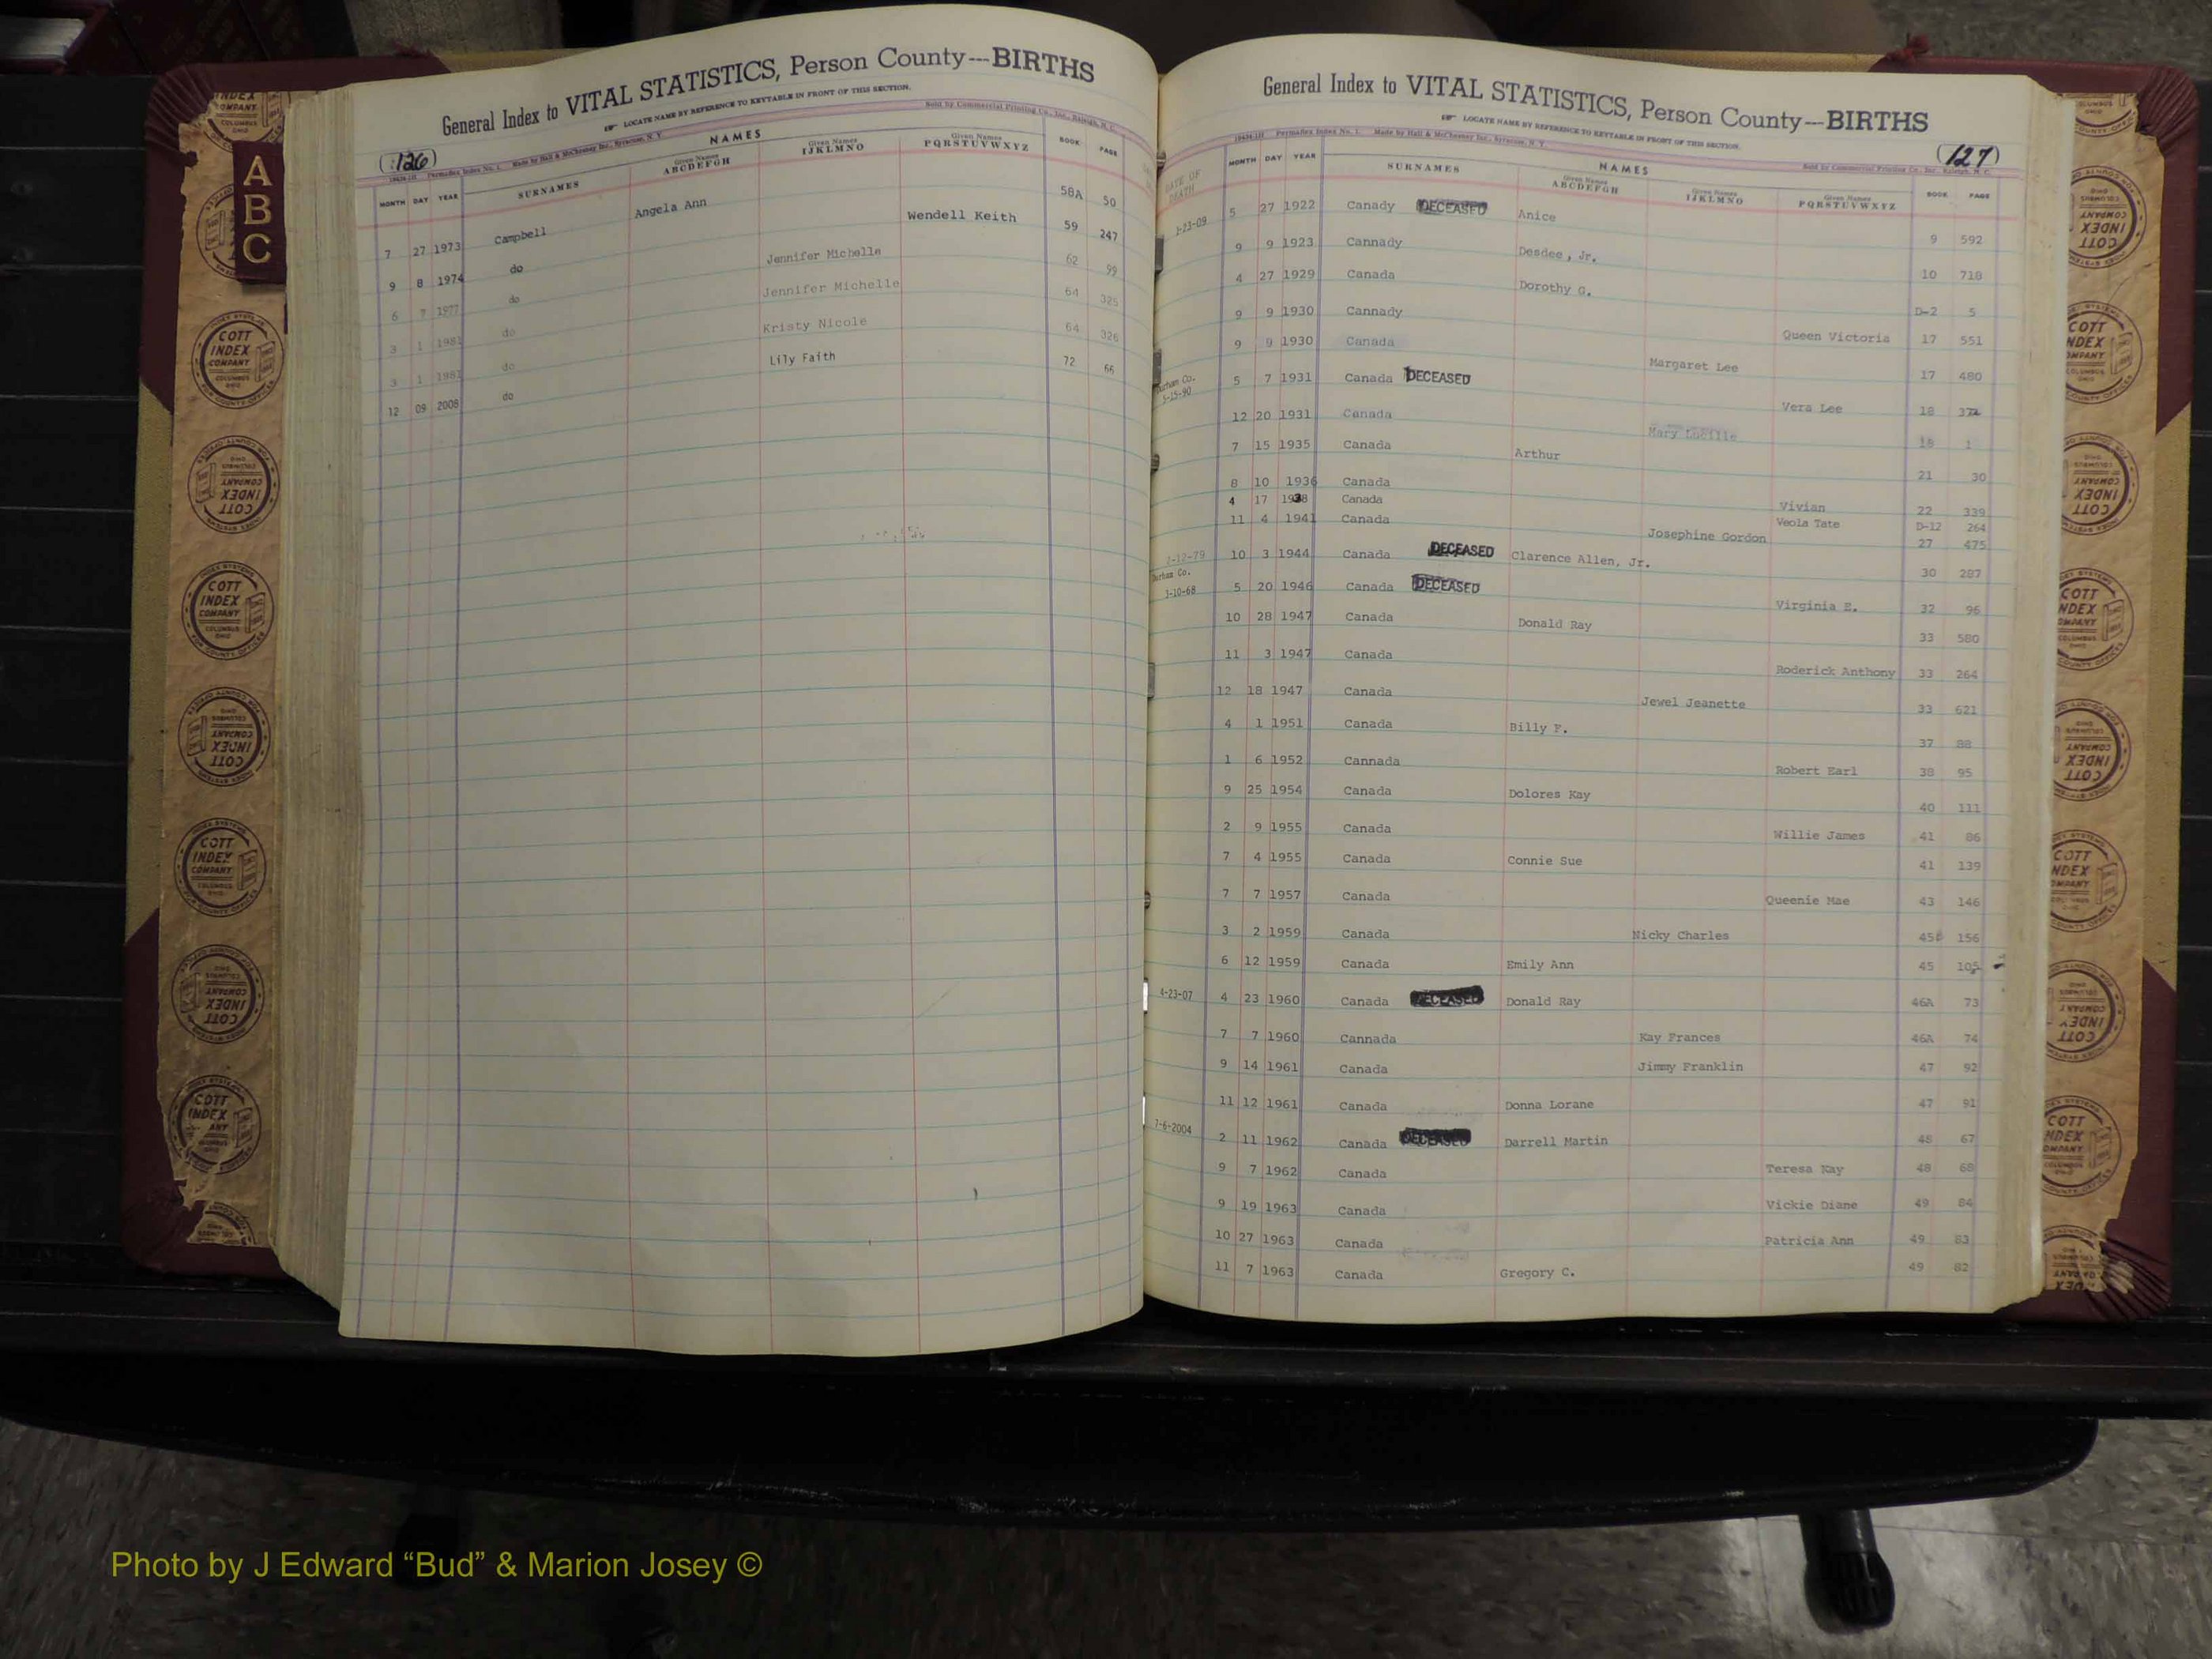 General Index to VITAL STATISTICS, Person County---BIRTHS
LOCATE NAME BY REFERENCE TO KEYTABLE IN FRONT OF THIS SECTION.
Permadex Index No. 1. Made by Hall & McChesney Inc., Syracuse, N. Y. Sold by Commercial Printing Co., Inc., Raleigh, N. C.
(126)
NAMES
MONTH DAY YEAR SURNAMES Given Names ABCDEFGH Given Names IJKLMNO Given Names PQRSTUVWXYZ BOOK PAGE
7 27 1973 Campbell Angela Ann 58A 50
9 8 1974 do Wendell Keith 59 247
6 7 1977 do Jennifer Michelle 62 99
3 1 1981 do Jennifer Michelle 64 325
3 1 1981 do Kristy Nicole 64 326
12 09 2008 do Lily Faith 72 66
General Index to VITAL STATISTICS, Person County---BIRTHS
LOCATE NAME BY REFERENCE TO KEYTABLE IN FRONT OF THIS SECTION.
Permadex Index No. 1. Made by Hall & McChesney Inc., Syracuse, N. Y. Sold by Commercial Printing Co., Inc., Raleigh, N. C.
(127)
NAMES
DATE OF DEATH MONTH DAY YEAR SURNAMES Given Names ABCDEFGH Given Names IJKLMNO Given Names PQRSTUVWXYZ BOOK PAGE
1-23-09 5 27 1922 Canady DECEASED Anice 9 592
9 9 1923 Cannady Desdee, Jr. 10 718
4 27 1929 Canada Dorothy G. D-2 5
9 9 1930 Cannady Queen Victoria 17 551
9 9 1930 Canada Margaret Lee 17 480
Durham Co. 5-15-90 5 7 1931 Canada DECEASED Vera Lee 18 372
12 20 1931 Canada Mary Lucille 18 1
7 15 1935 Canada Arthur 21 30
8 10 1936 Canada Vivian 22 339
4 17 1938 Canada Veola Tate D-12 264
11 4 1941 Canada Josephine Gordon 27 475
2-12-79 10 3 1944 Canada DECEASED Clarence Allen, Jr. 30 287
Durham Co. 3-10-68 5 20 1946 Canada DECEASED Virginia E. 32 96
10 28 1947 Canada Donald Ray 33 580
11 3 1947 Canada Roderick Anthony 33 264
12 18 1947 Canada Jewel Jeanette 33 621
4 1 1951 Canada Billy F. 37 88
1 6 1952 Cannada Robert Earl 38 95
9 25 1954 Canada Dolores Kay 40 111
2 9 1955 Canada Willie James 41 86
7 4 1955 Canada Connie Sue 41 139
7 7 1957 Canada Queenie Mae 43 146
3 2 1959 Canada Nicky Charles 45B 156
6 12 1959 Canada Emily Ann 45 105
4-23-07 4 23 1960 Canada DECEASED Donald Ray 46A 73
7 7 1960 Cannada Kay Frances 46A 74
9 14 1961 Canada Jimmy Franklin 47 92
11 12 1961 Canada Donna Lorane 47 91
7-6-2004 2 11 1962 Canada DECEASED Darrell Martin 48 67
9 7 1962 Canada Teresa Kay 48 68
9 19 1963 Canada Vickie Diane 49 84
10 27 1963 Canada Patricia Ann 49 83
11 7 1963 Canada Gregory C. 49 82
A
B
C
COTT INDEX COMPANY COLUMBUS OHIO
Photo by J Edward “Bud” & Marion Josey ©